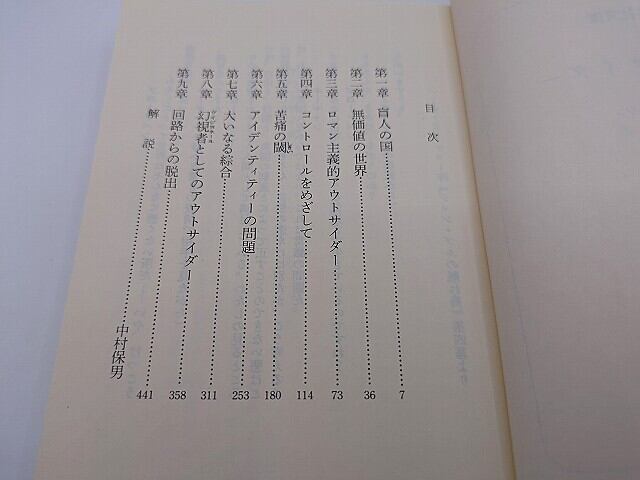 目次
第一章 盲人の国 7
第二章 無価値の世界 36
第三章 ロマン主義的アウトサイダー 73
第四章 コントロールをめざして 114
第五章 苦痛の閾 180
第六章 アイデンティティーの問題 253
第七章 大いなる綜合
第八章 幻視者としてのアウトサイダー 311
第九章 回路からの脱出 358
解説 中村保男 441